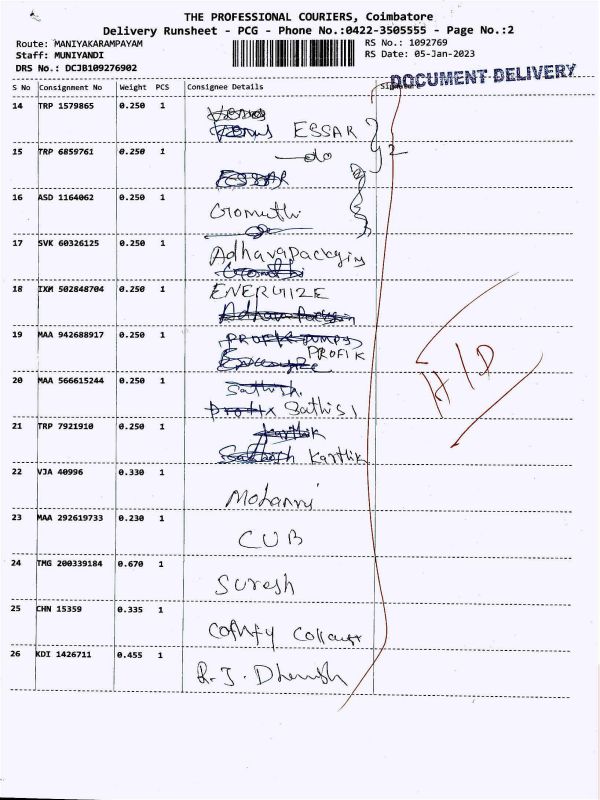 THE PROFESSIONAL COURIERS, Coimbatore
Delivery Runsheet - PCG - Phone No.:0422-3505555 - Page No.:2
Route: MANIYAKARAMPAYAM RS No.: 1092769
Staff: MUNIYANDI RS Date: 05-Jan-2023
DRS No.: DCJB109276902
DOCUMENT DELIVERY
S No Consignment No Weight PCS Consignee Details
14 TRP 1579865 0.250 1
Venus ESSAR
15 TRP 6859761 0.250 1 do 2
ESSAR
16 ASD 1164062 0.250 1
Gomathi
17 SVK 60326125 0.250 1
Adhavapackgin
Gomathi
18 IXM 502848704 0.250 1 ENERGIZE
19 MAA 942688917 0.250 1 PROFIK PUMPS
PROFIK
20 MAA 566615244 0.250 1 Sathish
Profix Sathis
21 TRP 7921910 0.250 1 Karthik
Sathish Karthik
22 VJA 40996 0.330 1
23 MAA 292619733 0.230 1
CUB
24 TMG 200339184 0.670 1
Suresh
25 CHN 15359 0.335 1
26 KDI 1426711 0.455 1
R.J.
H/D